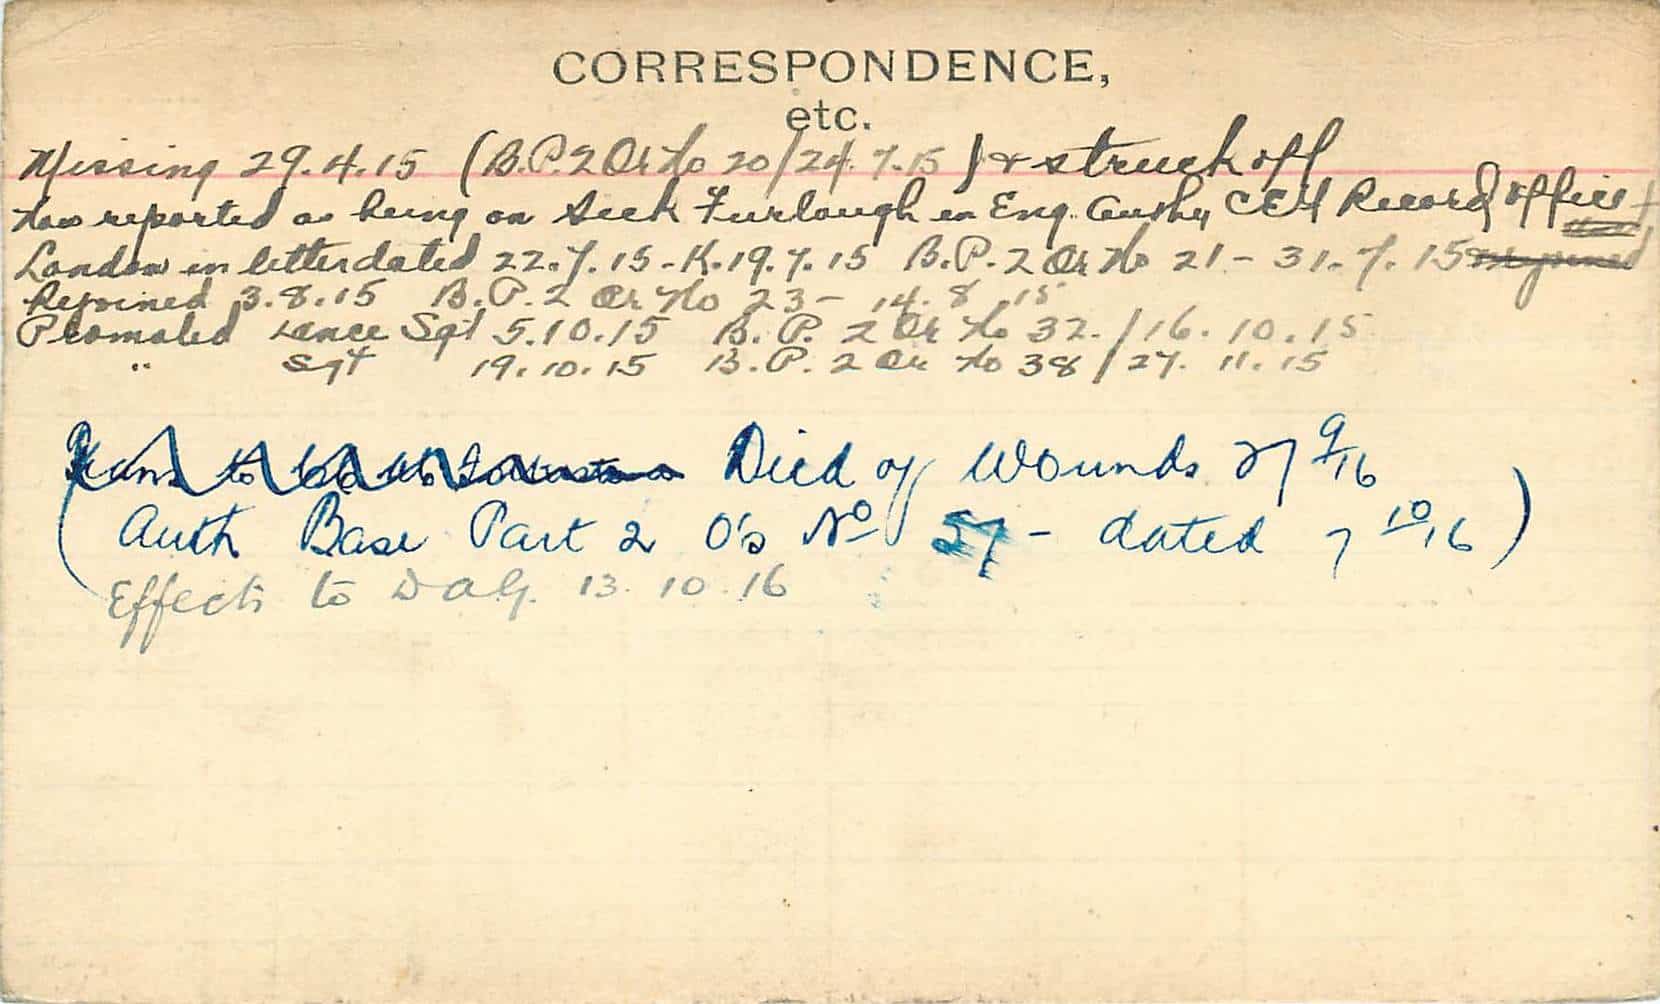 CORRESPONDENCE,
etc.
Missing 29.4.15 (B.P.2 Or No 20/24.7.15) & struck off
Now reported as being on Sick Furlough in Eng. Authy CEF Record Office
London in letter dated 22.7.15 - K.19.7.15 B.P.2 Or No 21 - 31.7.15
Rejoined 3.8.15 B.P.2 Or No 23 - 14.8.15
Promoted Lance Sgt 5.10.15 B.P. 2 Or No 32./16.10.15
" Sgt 19.10.15 B.P. 2 Or No 38/27.11.15
Died of Wounds 27 9/16
(Auth Base Part 2 O's No 57 - dated 7 10/16)
Effects to DAG. 13.10.16